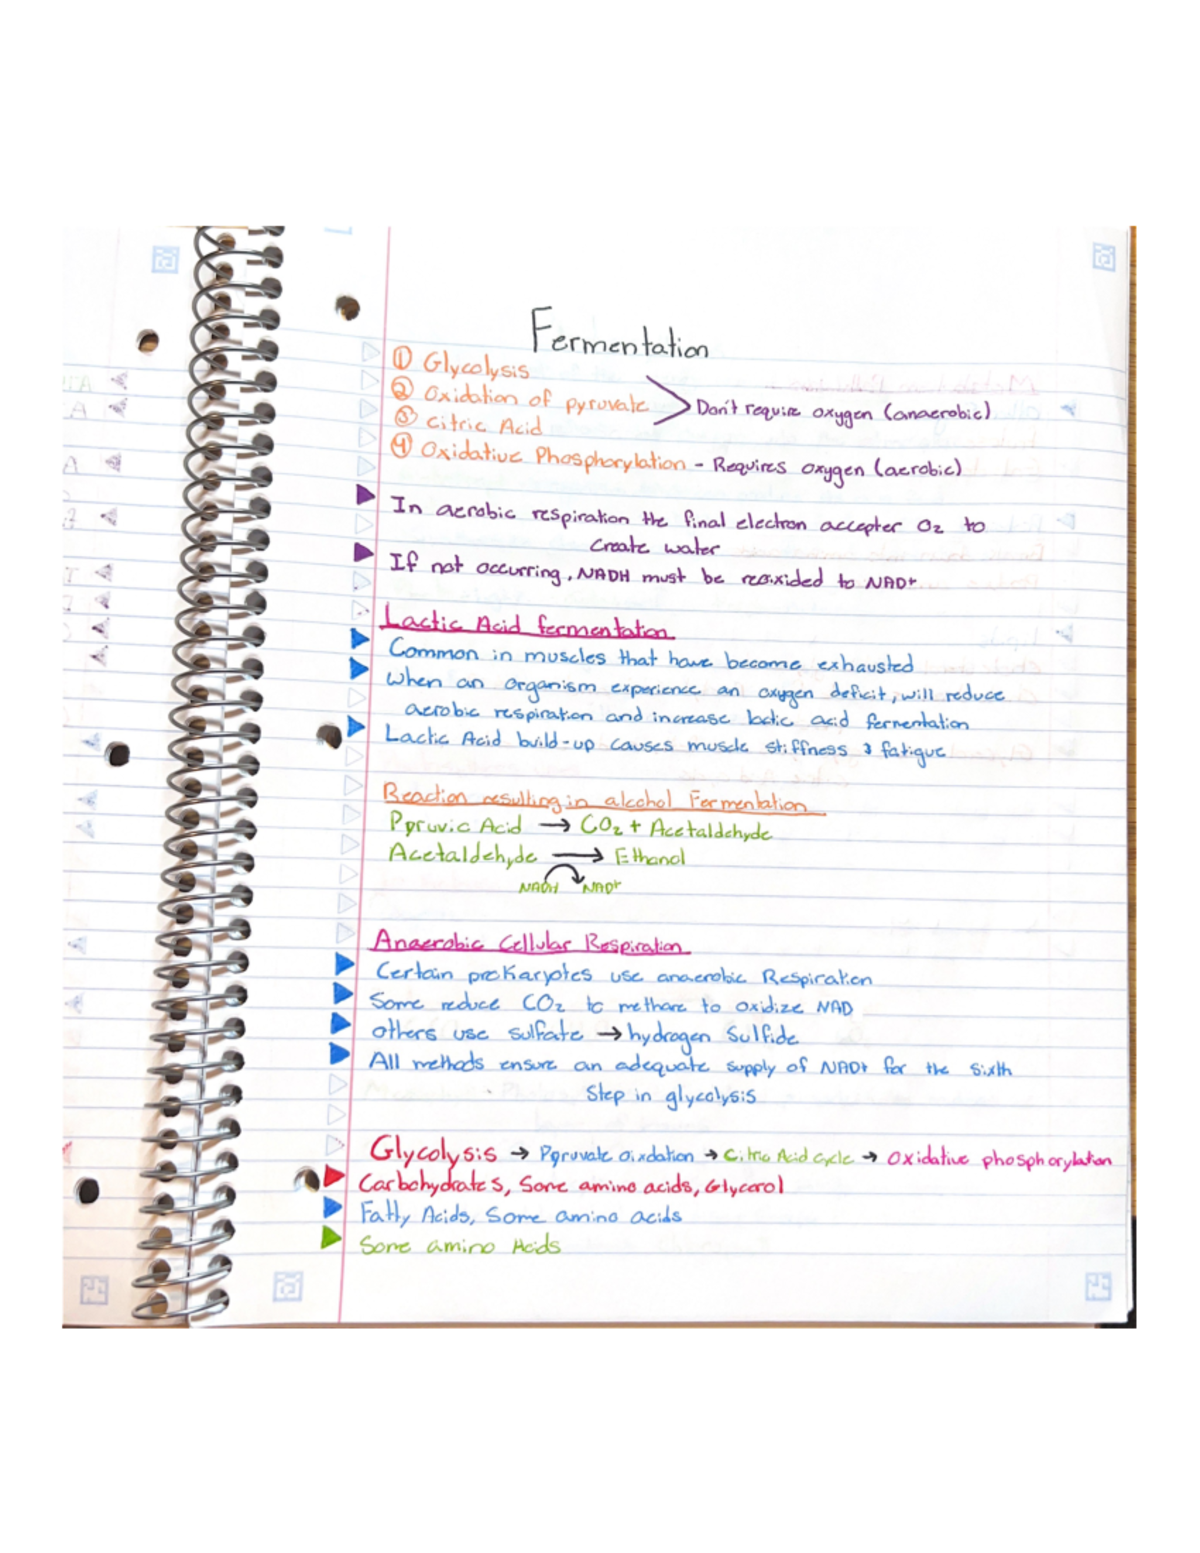 Fermentation
① Glycolysis
② Oxidation of pyruvate
Don't require oxygen (anaerobic)
③ Citric Acid
④ Oxidative Phosphorylation - Requires oxygen (aerobic)
In aerobic respiration the final electron accepter O2 to
create water
If not occurring, NADH must be reoxided to NAD+
Lactic Acid fermentation
Common in muscles that have become exhausted
when an organism experience an oxygen deficit, will reduce
aerobic respiration and increase lactic acid fermentation
Lactic Acid build-up causes muscle stiffness & fatigue
Reaction resulting in alcohol Fermentation
Pyruvic Acid → CO2 + Acetaldehyde
Acetaldehyde → Ethanol
NADH NAD+
Anaerobic Cellular Respiration
Certain proKaryotes use anaerobic Respiration
Some reduce CO2 to methane to oxidize NAD
others use sulfate → hydrogen Sulfide
All methods ensure an adequate supply of NAD+ for the sixth
Step in glycolysis
Glycolysis → Pyruvate oixdation → Citric Acid cycle → Oxidative phosphorylation
Carbohydrates, Some amino acids, Glycerol
Fatty Acids, Some amino acids
Some amino Acids